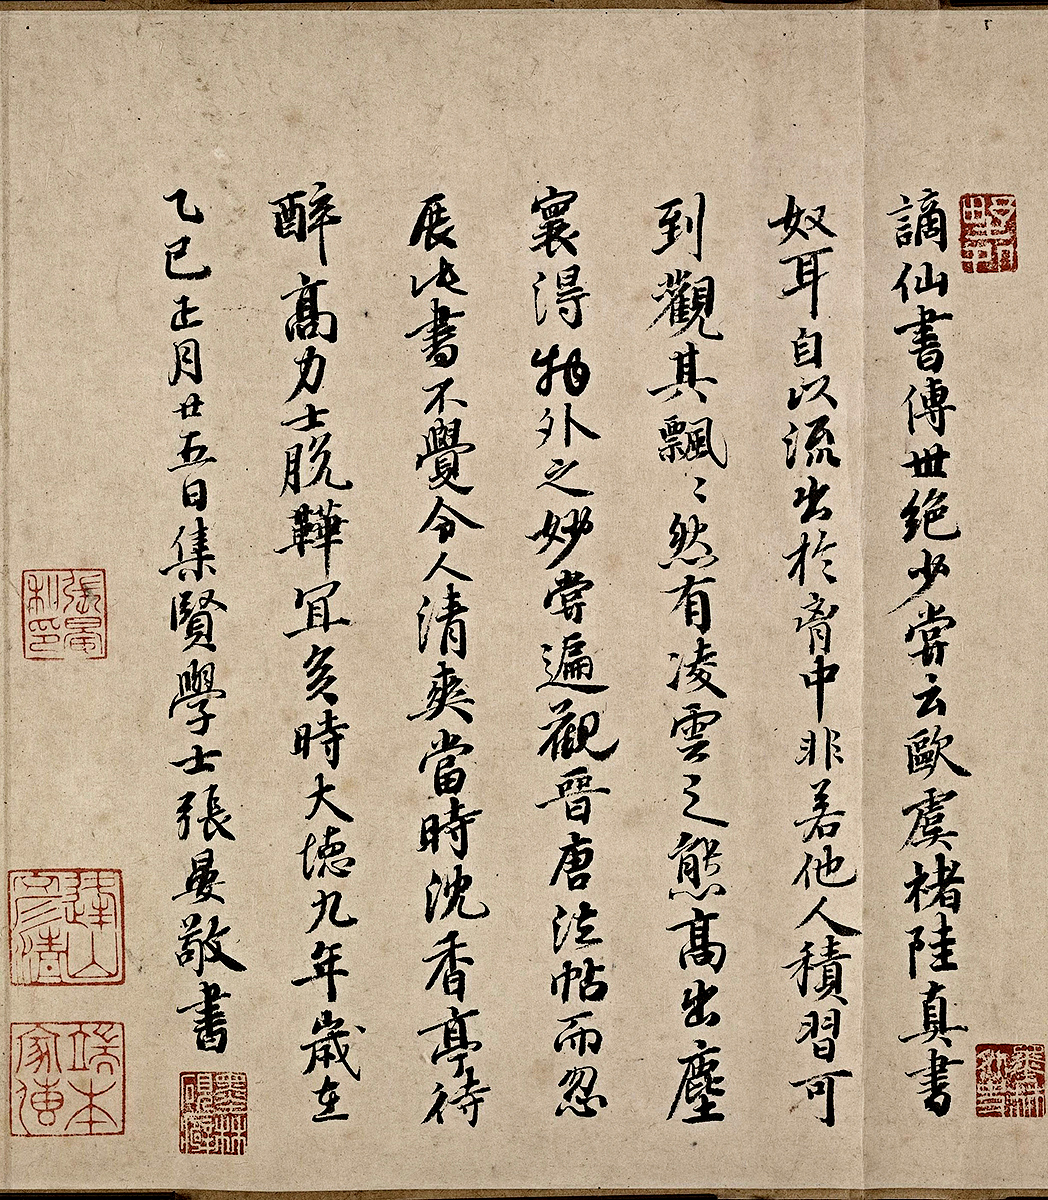 謫仙書傳世絶少嘗云歐虞褚陸真書
奴耳自以流出於胷中非若他人積習可
到觀其飄〻然有凌雲之態高出塵
寰得物外之妙嘗遍觀晉唐法帖而忽
展此書不覺令人清爽當時沈香亭待
醉高力士脱鞾冝矣時大徳九年歲在
乙巳正月廿五日集賢學士張晏敬書
張晏
私印
端本
家傳